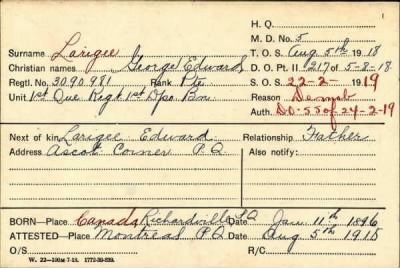 H. Q.
M. D. No. 5
Surname Larigee T. O. S. Aug. 5th 1918
Christian names George Edward D. O. Pt. II 217 of 5-8-18
Regtl. No. 3090981 Rank Pte S. O. S. 22-2-1919
Unit 1st Que Regt 1st Depo Bn Reason Demob
Auth. D.O. 55 of 24-2-19
Next of kin Larigee Edward Relationship Father
Address Ascot Corner P.Q. Also notify:
BORN—Place Canada Richardville P.Q Date Jan 11th 1896
ATTESTED—Place Montreal P.Q Date Aug 5th 1918
O/S R/C
W. 22—100M 7-18. 1772-39-839.